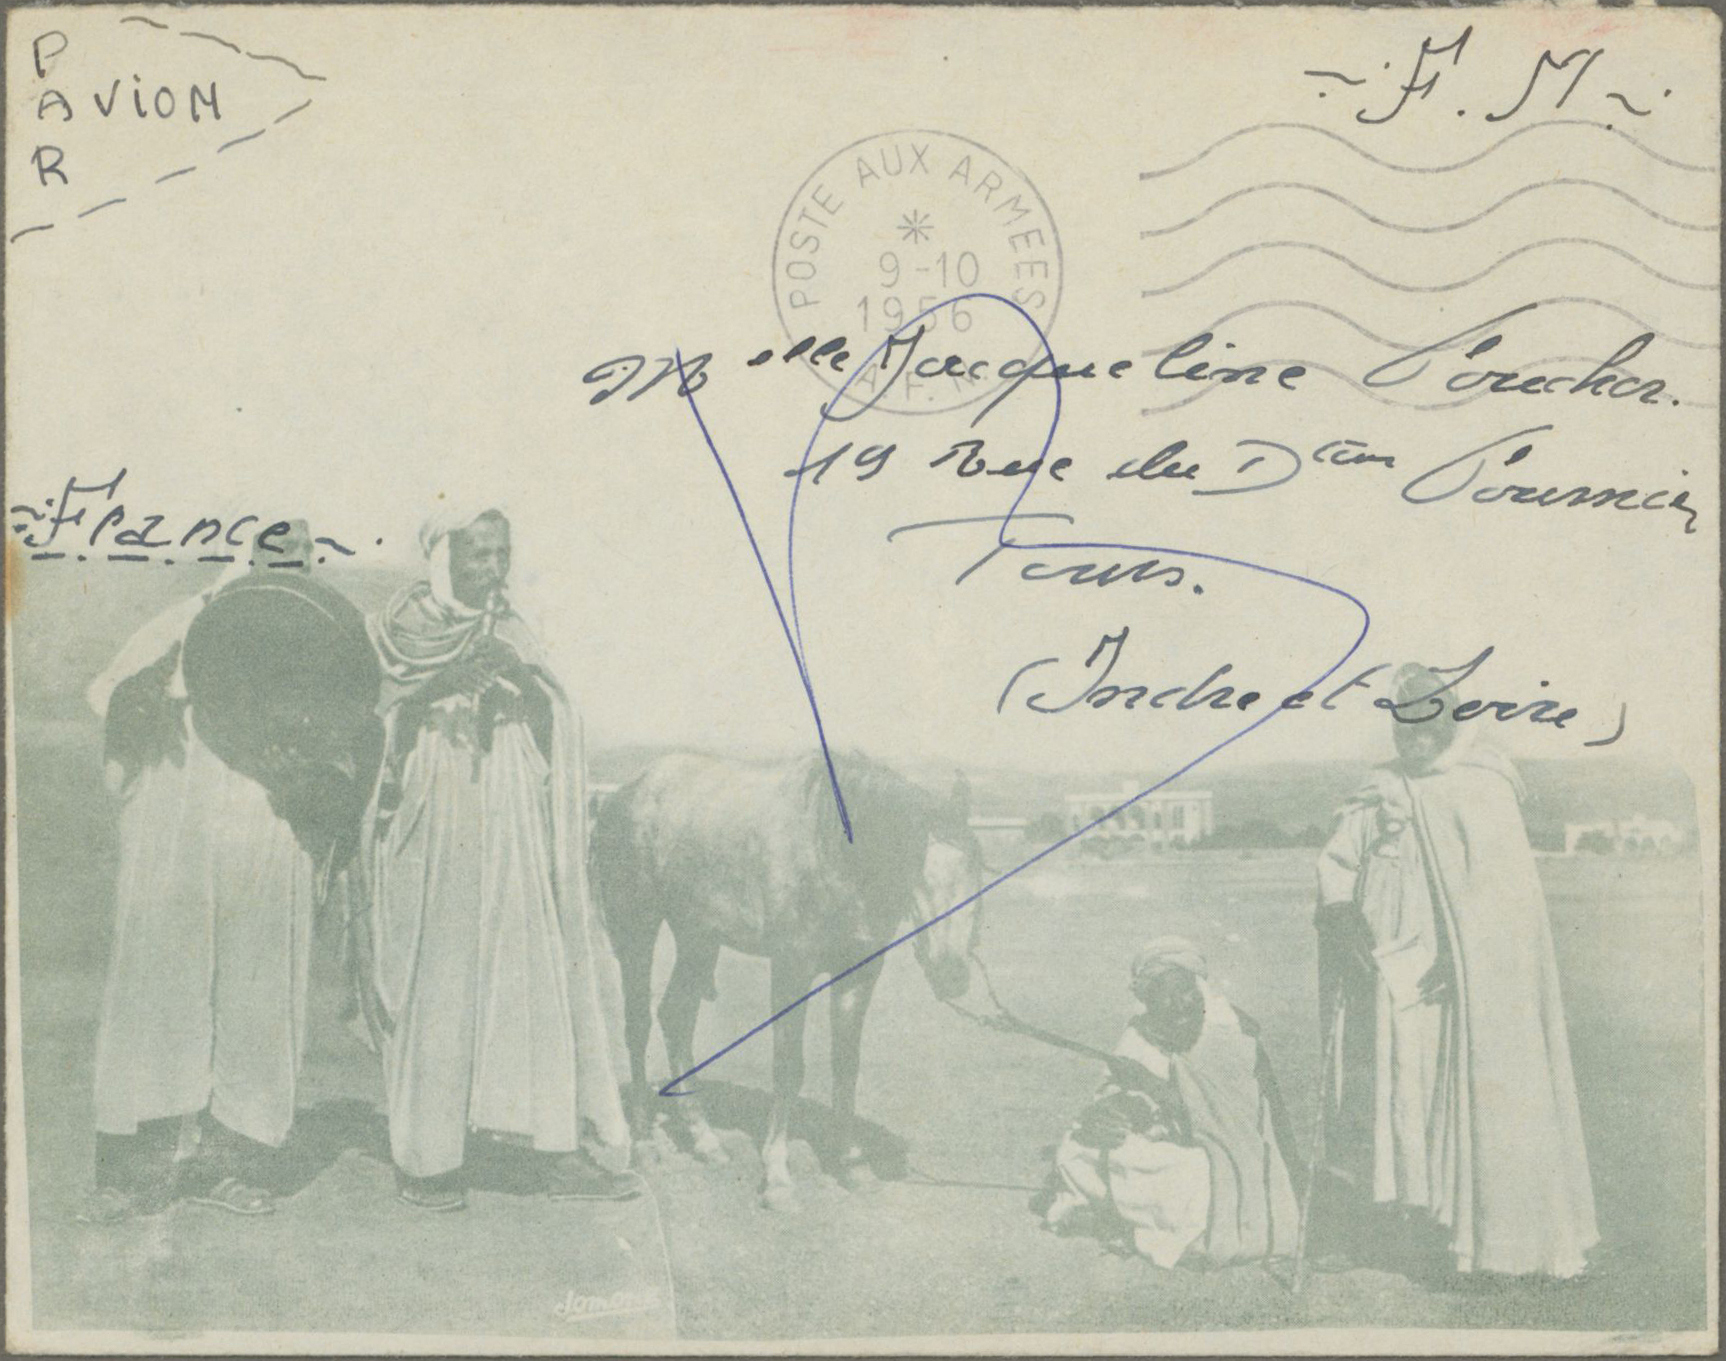 PAR AVION
~·F. M~·
POSTE AUX ARMEES
*
9-10
1956
A.F.N.
Melle Jacqueline
19 Rue du Dcteur Fournier
Tours.
(Indre et Loire)
~·France~·